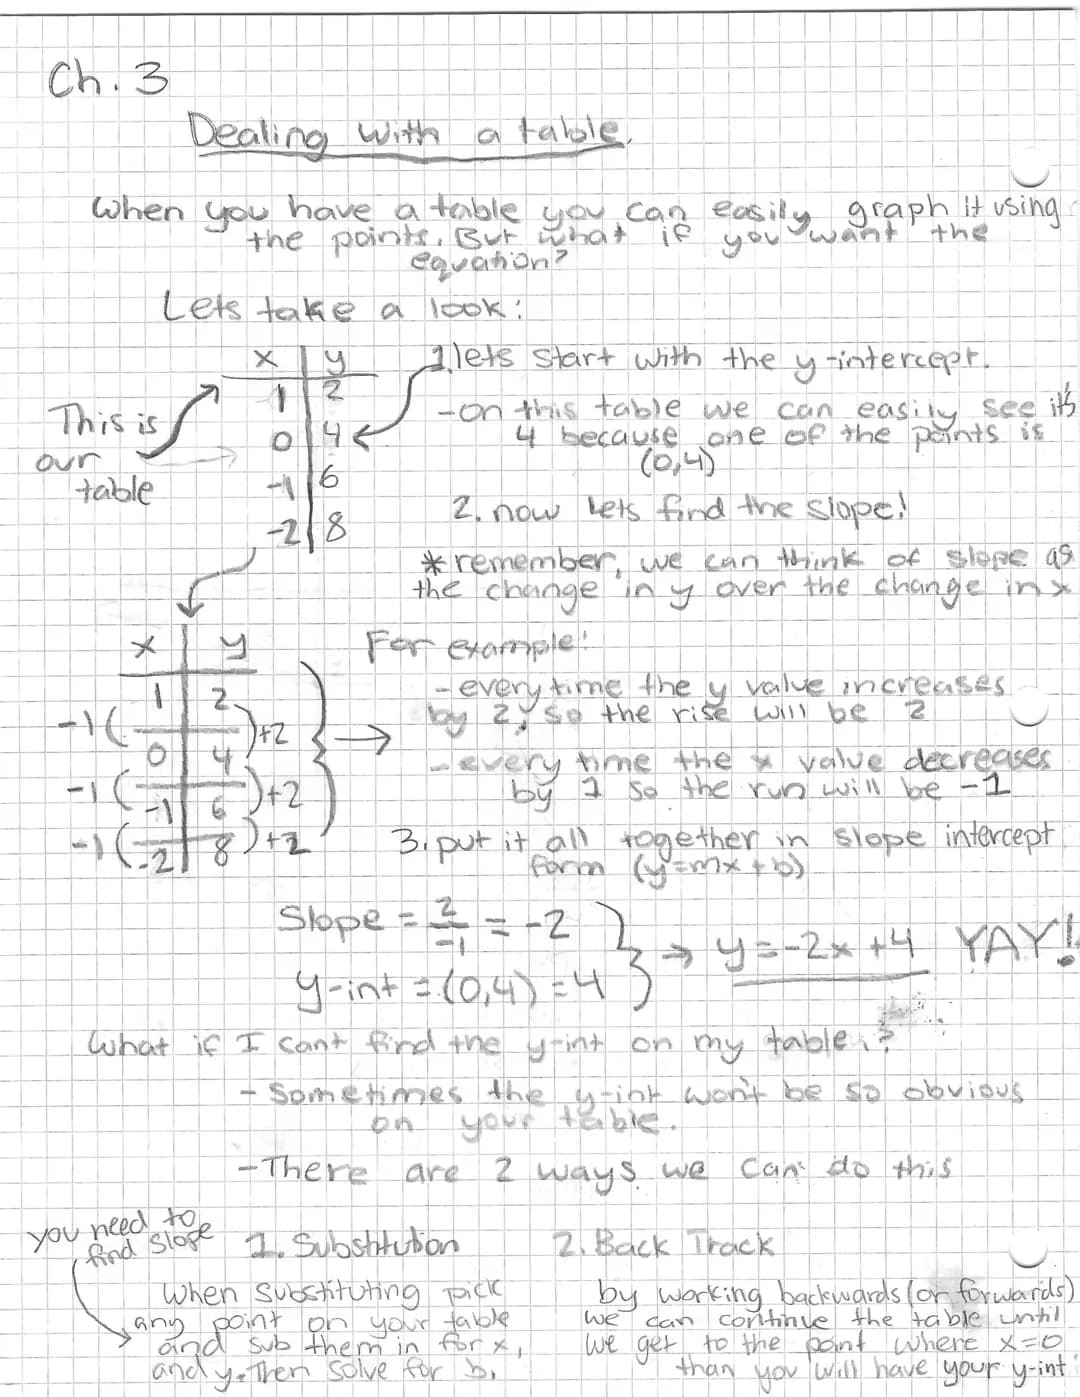 Ch. 3
Dealing with a table.
When you have a table you can easily graph it using
the points. But what if you want the
equation?
Lets take a look:
x | y
1 | 2
0 | 4
-1 | 6
-2 | 8
This is
our
table
1. lets start with the y-intercept.
-on this table we can easily see it's
4 because one of the points is
(0,4)
2. now lets find the slope!
* remember, we can think of slope as
the change in y over the change in x
x | y
1 | 2
0 | 4
-1 | 6
-2 | 8
-1 ( ) +2
-1 ( ) +2
-1 ( ) +2
For example!
-every time the y value increases
by 2, so the rise will be 2
-every time the x value decreases
by 1 so the run will be -1
3. put it all together in slope intercept
form (y=mx+b)
Slope = 2/-1 = -2
y-int = (0,4) = 4
→ y=-2x+4 YAY!
What if I cant find the y-int on my table?
- Sometimes the y-int won't be so obvious
on your table.
-There are 2 ways we can do this
you need to
find slope
1. Substitution
When substituting pick
any point on your table
and sub them in for x,
and y. Then solve for b.
2. Back Track
by working backwards (or forwards)
we can continue the table until
we get to the point where x=0
than you will have your y-int